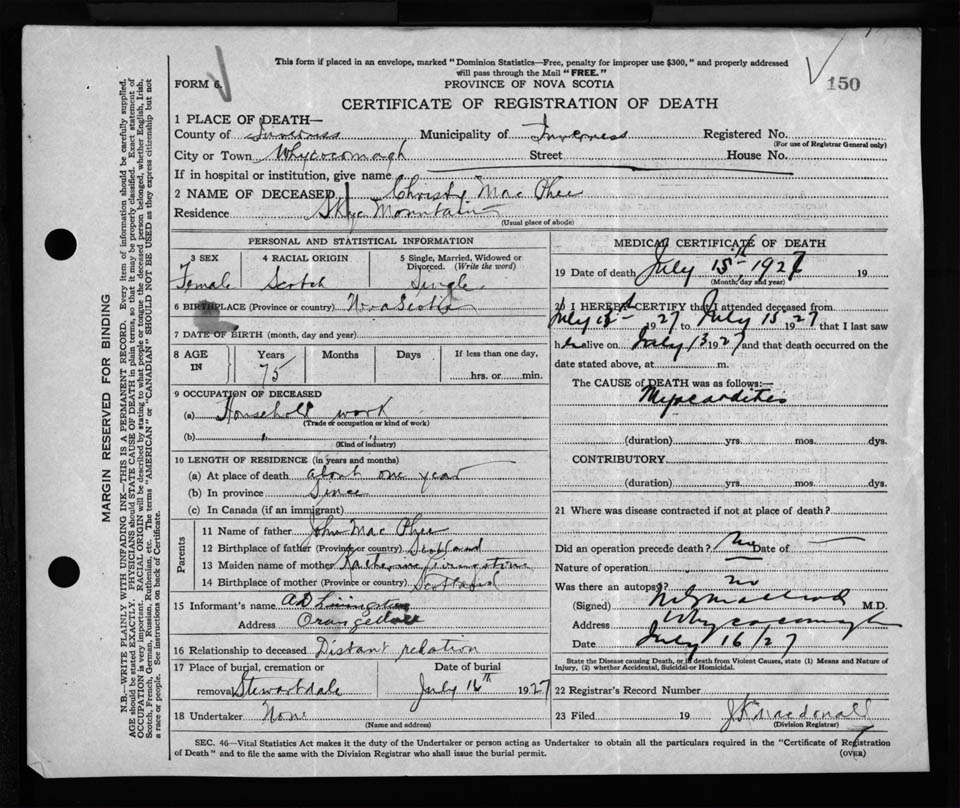 This form if placed in an envelope, marked "Dominion Statistics—Free, penalty for improper use $300," and properly addressed
will pass through the Mail "FREE."
FORM 6.
PROVINCE OF NOVA SCOTIA
150
CERTIFICATE OF REGISTRATION OF DEATH
1 PLACE OF DEATH—
County of Inverness Municipality of Inverness Registered No.
(For use of Registrar General only)
City or Town Whycocomagh Street House No.
If in hospital or institution, give name
2 NAME OF DECEASED Christy Mac Phee
Residence Skye Mountain
(Usual place of abode)
PERSONAL AND STATISTICAL INFORMATION
3 SEX 4 RACIAL ORIGIN 5 Single, Married, Widowed or
Divorced. (Write the word)
Female Scotch Single
6 BIRTHPLACE (Province or country) Nova Scotia
7 DATE OF BIRTH (month, day and year)
8 AGE IN Years Months Days If less than one day,
75 hrs. or min.
9 OCCUPATION OF DECEASED
(a) Household work
(Trade or occupation or kind of work)
(b) " "
(Kind of industry)
10 LENGTH OF RESIDENCE (in years and months)
(a) At place of death about one year
(b) In province Since
(c) In Canada (if an immigrant)
Parents
11 Name of father John Mac Phee
12 Birthplace of father (Province or country) Scotland
13 Maiden name of mother Katherine Livingstone
14 Birthplace of mother (Province or country) Scotland
15 Informant's name A D Livingstone
Address Orangedale
16 Relationship to deceased Distant relation
17 Place of burial, cremation or Date of burial
removal Stewartdale July 16th 1927
18 Undertaker None
(Name and address)
MEDICAL CERTIFICATE OF DEATH
19 Date of death July 15th, 1927 19
(Month, day and year)
20 I HEREBY CERTIFY that I attended deceased from
July 1927 to July 15 1927, that I last saw
her alive on July 13 1927 and that death occurred on the
date stated above, at m.
The CAUSE of DEATH was as follows:—
Myocarditis
(duration) yrs. mos. dys.
CONTRIBUTORY
(duration) yrs. mos. dys.
21 Where was disease contracted if not at place of death?
Did an operation precede death? No Date of
Nature of operation
Was there an autopsy? no
(Signed) MacLeod M.D.
Address Whycocomagh
Date July 16/27
State the Disease causing Death, or in death from Violent Causes, state (1) Means and Nature of
Injury, (2) whether Accidental, Suicidal or Homicidal.
22 Registrar's Record Number
23 Filed 19 J K Macdonald
(Division Registrar)
SEC. 46—Vital Statistics Act makes it the duty of the Undertaker or person acting as Undertaker to obtain all the particulars required in the "Certificate of Registry
of Death" and to file the same with the Division Registrar who shall issue the burial permit.
(OVER)
MARGIN RESERVED FOR BINDING
N.B.—WRITE PLAINLY WITH UNFADING INK—THIS IS A PERMANENT RECORD. Every item of information should be carefully supplied.
AGE should be stated EXACTLY. PHYSICIANS should STATE CAUSE OF DEATH in plain terms, so that it may be properly classified. Exact statement of
OCCUPATION is very important. RACIAL ORIGIN will be described by stating to what people or tongue the deceased person belonged, whether English, Irish,
Scotch, French, German, Russian, Ruthenian, etc. The terms "AMERICAN" or "CANADIAN" SHOULD NOT BE USED as they express citizenship but not
a race or people. See instructions on back of Certificate.